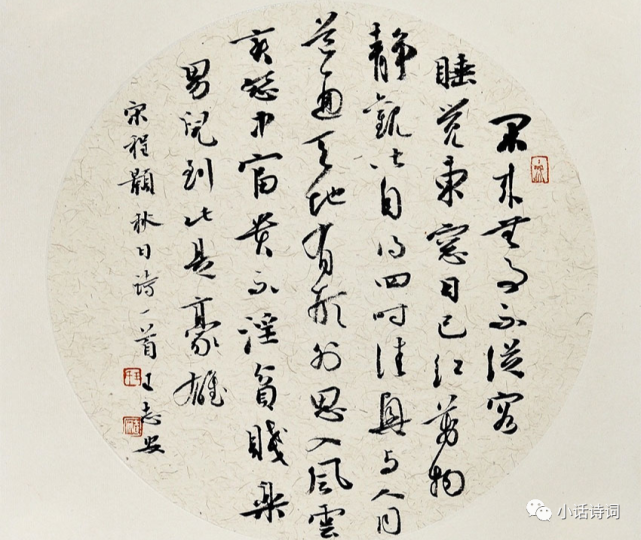 閑来無事不從容
睡覺東窗日已红萬物
静觀皆自得四时佳興与人同
道通天地有形外思入風雲
變態中富貴不淫貧賤樂
男兒到此是豪雄
宋程顥秋日诗一首王志安
小话诗词